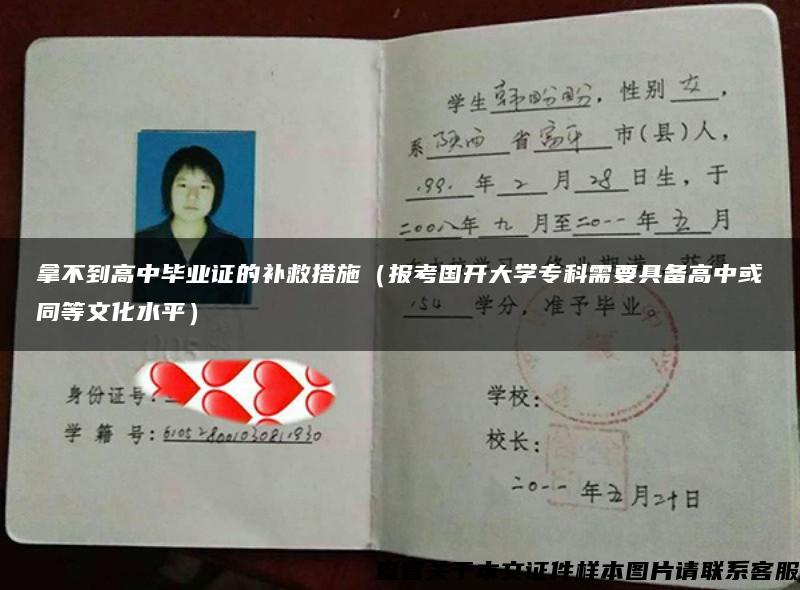 学生韩盼盼，性别女，
系陕西省富平市(县)人，
1991年2月28日生，于
二00八年九月至二0一一年五月
拿不到高中毕业证的补救措施（报考国开大学专科需要具备高中或
同等文化水平）
154学分，准予毕业。
身份证号：
学籍号：
学校：
校长：
二0一一年五月二十日
查看关于本文证件样本图片请联系客服